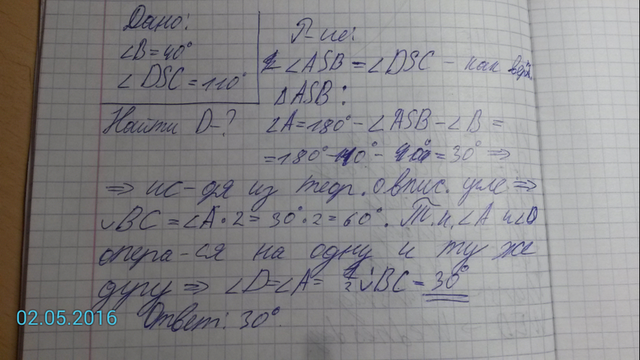 Дано:
∠B=40°
∠DSC=110°
Найти D-?
Р-ие:
∠ASB=∠DSC - как верт.
ΔASB:
∠A=180°-∠ASB-∠B=
=180°-110°-40°=30° ⇒
⇒ ис-дя из теор. о впис. угле ⇒
◡BC=∠A·2=30°·2=60°. Т.к. ∠A и ∠D
опера-ся на одну и ту же
дугу ⇒ ∠D=∠A=1/2◡BC=30°
Ответ: 30°
02.05.2016